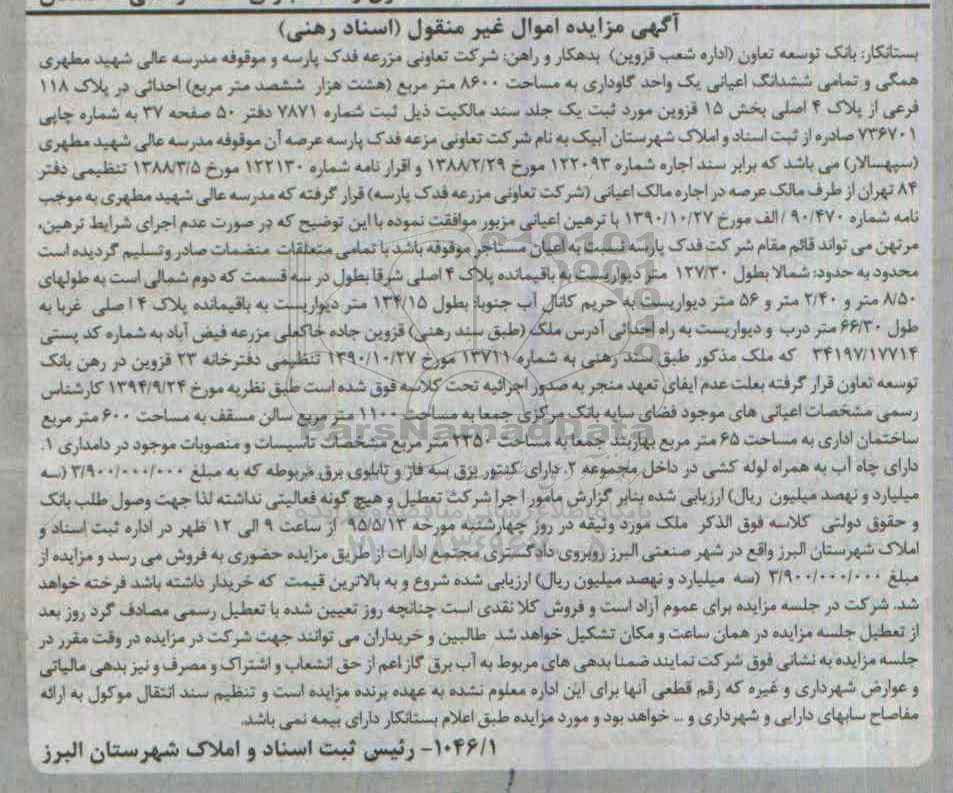 آگهی مزایده اموال غیر منقول (اسناد رهنی)
بستانکار: بانک توسعه تعاون (اداره شعب قزوین) بدهکار و راهن: شرکت تعاونی مزرعه فدک پارسه و موقوفه مدرسه عالی شهید مطهری
همگی و تمامی ششدانگ اعیانی یک واحد گاوداری به مساحت ۸۶۰۰ متر مربع (هشت هزار ششصد متر مربع) احداثی در پلاک ۱۱۸
فرعی از پلاک ۴ اصلی بخش ۱۵ قزوین مورد ثبت یک جلد سند مالکیت ذیل ثبت شماره ۷۸۷۱ دفتر ۵۰ صفحه ۳۷ به شماره چاپی
۷۳۶۷۰۱ صادره از ثبت اسناد و املاک شهرستان آبیک به نام شرکت تعاونی مزعه فدک پارسه عرصه آن موقوفه مدرسه عالی شهید مطهری
(سپهسالار) می باشد که برابر سند اجاره شماره ۱۲۲۰۹۳ مورخ ۱۳۸۸/۲/۲۹ و اقرار نامه شماره ۱۲۲۱۳۰ مورخ ۱۳۸۸/۳/۵ تنظیمی دفتر
۸۴ تهران از طرف مالک عرصه در اجاره مالک اعیانی (شرکت تعاونی مزرعه فدک پارسه) قرار گرفته که مدرسه عالی شهید مطهری به موجب
نامه شماره ۹۰/۴۷۰ / الف مورخ ۱۳۹۰/۱۰/۲۷ با ترهین اعیانی مزبور موافقت نموده با این توضیح که در صورت عدم اجرای شرایط ترهین،
مرتهن می تواند قائم مقام شرکت فدک پارسه نسبت به اعیان مستاجر موقوفه باشد با تمامی متعلقات منضمات صادر وتسلیم گردیده است
محدود به حدود: شمالا بطول ۱۲۷/۳۰ متر دیواریست به باقیمانده پلاک ۴ اصلی شرقا بطول در سه قسمت که دوم شمالی است به طولهای
۸/۵۰ متر و ۲/۴۰ متر و ۵۶ متر دیواریست به حریم کانال آب جنوبا: بطول ۱۳۴/۱۵ متر دیواریست به باقیمانده پلاک ۴ اصلی غربا به
طول ۶۶/۳۰ متر درب و دیواریست به راه احداثی آدرس ملک (طبق سند رهنی) قزوین جاده خاکعلی مزرعه فیض آباد به شماره کد پستی
۳۴۱۹۷/۱۷۷۱۴ که ملک مذکور طبق سند رهنی به شماره ۱۳۷۱۱ مورخ ۱۳۹۰/۱۰/۲۷ تنظیمی دفترخانه ۲۳ قزوین در رهن بانک
توسعه تعاون قرار گرفته بعلت عدم ایفای تعهد منجر به صدور اجرائیه تحت کلاسه فوق شده است طبق نظریه مورخ ۱۳۹۴/۹/۲۴ کارشناس
رسمی مشخصات اعیانی های موجود فضای سایه بانک مرکزی جمعا به مساحت ۱۱۰۰ متر مربع سالن مسقف به مساحت ۶۰۰ متر مربع
ساختمان اداری به مساحت ۶۵ متر مربع بهاربند جمعا به مساحت ۲۳۵۰ متر مربع مشخصات تاسیسات و منصوبات موجود در دامداری ۱.
دارای چاه آب به همراه لوله کشی در داخل مجموعه ۲. دارای کنتور برق سه فاز و تابلوی برق مربوطه که به مبلغ ۳/۹۰۰/۰۰۰/۰۰۰ (سه
میلیارد و نهصد میلیون ریال) ارزیابی شده بنابر گزارش مامور اجرا شرکت تعطیل و هیچ گونه فعالیتی نداشته لذا جهت وصول طلب بانک
و حقوق دولتی کلاسه فوق الذکر ملک مورد وثیقه در روز چهارشنبه مورخه ۹۵/۵/۱۳ از ساعت ۹ الی ۱۲ ظهر در اداره ثبت اسناد و
املاک شهرستان البرز واقع در شهر صنعتی البرز روبروی دادگستری مجتمع ادارات از طریق مزایده حضوری به فروش می رسد و مزایده از
مبلغ ۳/۹۰۰/۰۰۰/۰۰۰ (سه میلیارد و نهصد میلیون ریال) ارزیابی شده شروع و به بالاترین قیمت که خریدار داشته باشد فرخته خواهد
شد. شرکت در جلسه مزایده برای عموم آزاد است و فروش کلا نقدی است چنانچه روز تعیین شده با تعطیل رسمی مصادف گرد روز بعد
از تعطیل جلسه مزایده در همان ساعت و مکان تشکیل خواهد شد طالبین و خریداران می توانند جهت شرکت در مزایده در وقت مقرر در
جلسه مزایده به نشانی فوق شرکت نمایند ضمنا بدهی های مربوط به آب برق گاز اعم از حق انشعاب و اشتراک و مصرف و نیز بدهی مالیاتی
و عوارض شهرداری و غیره که رقم قطعی آنها برای این اداره معلوم نشده به عهده برنده مزایده است و تنظیم سند انتقال موکول به ارائه
مفاصاح سابهای دارایی و شهرداری و ... خواهد بود و مورد مزایده طبق اعلام بستانکار دارای بیمه نمی باشد.
۱۰۴۶/۱- رئیس ثبت اسناد و املاک شهرستان البرز